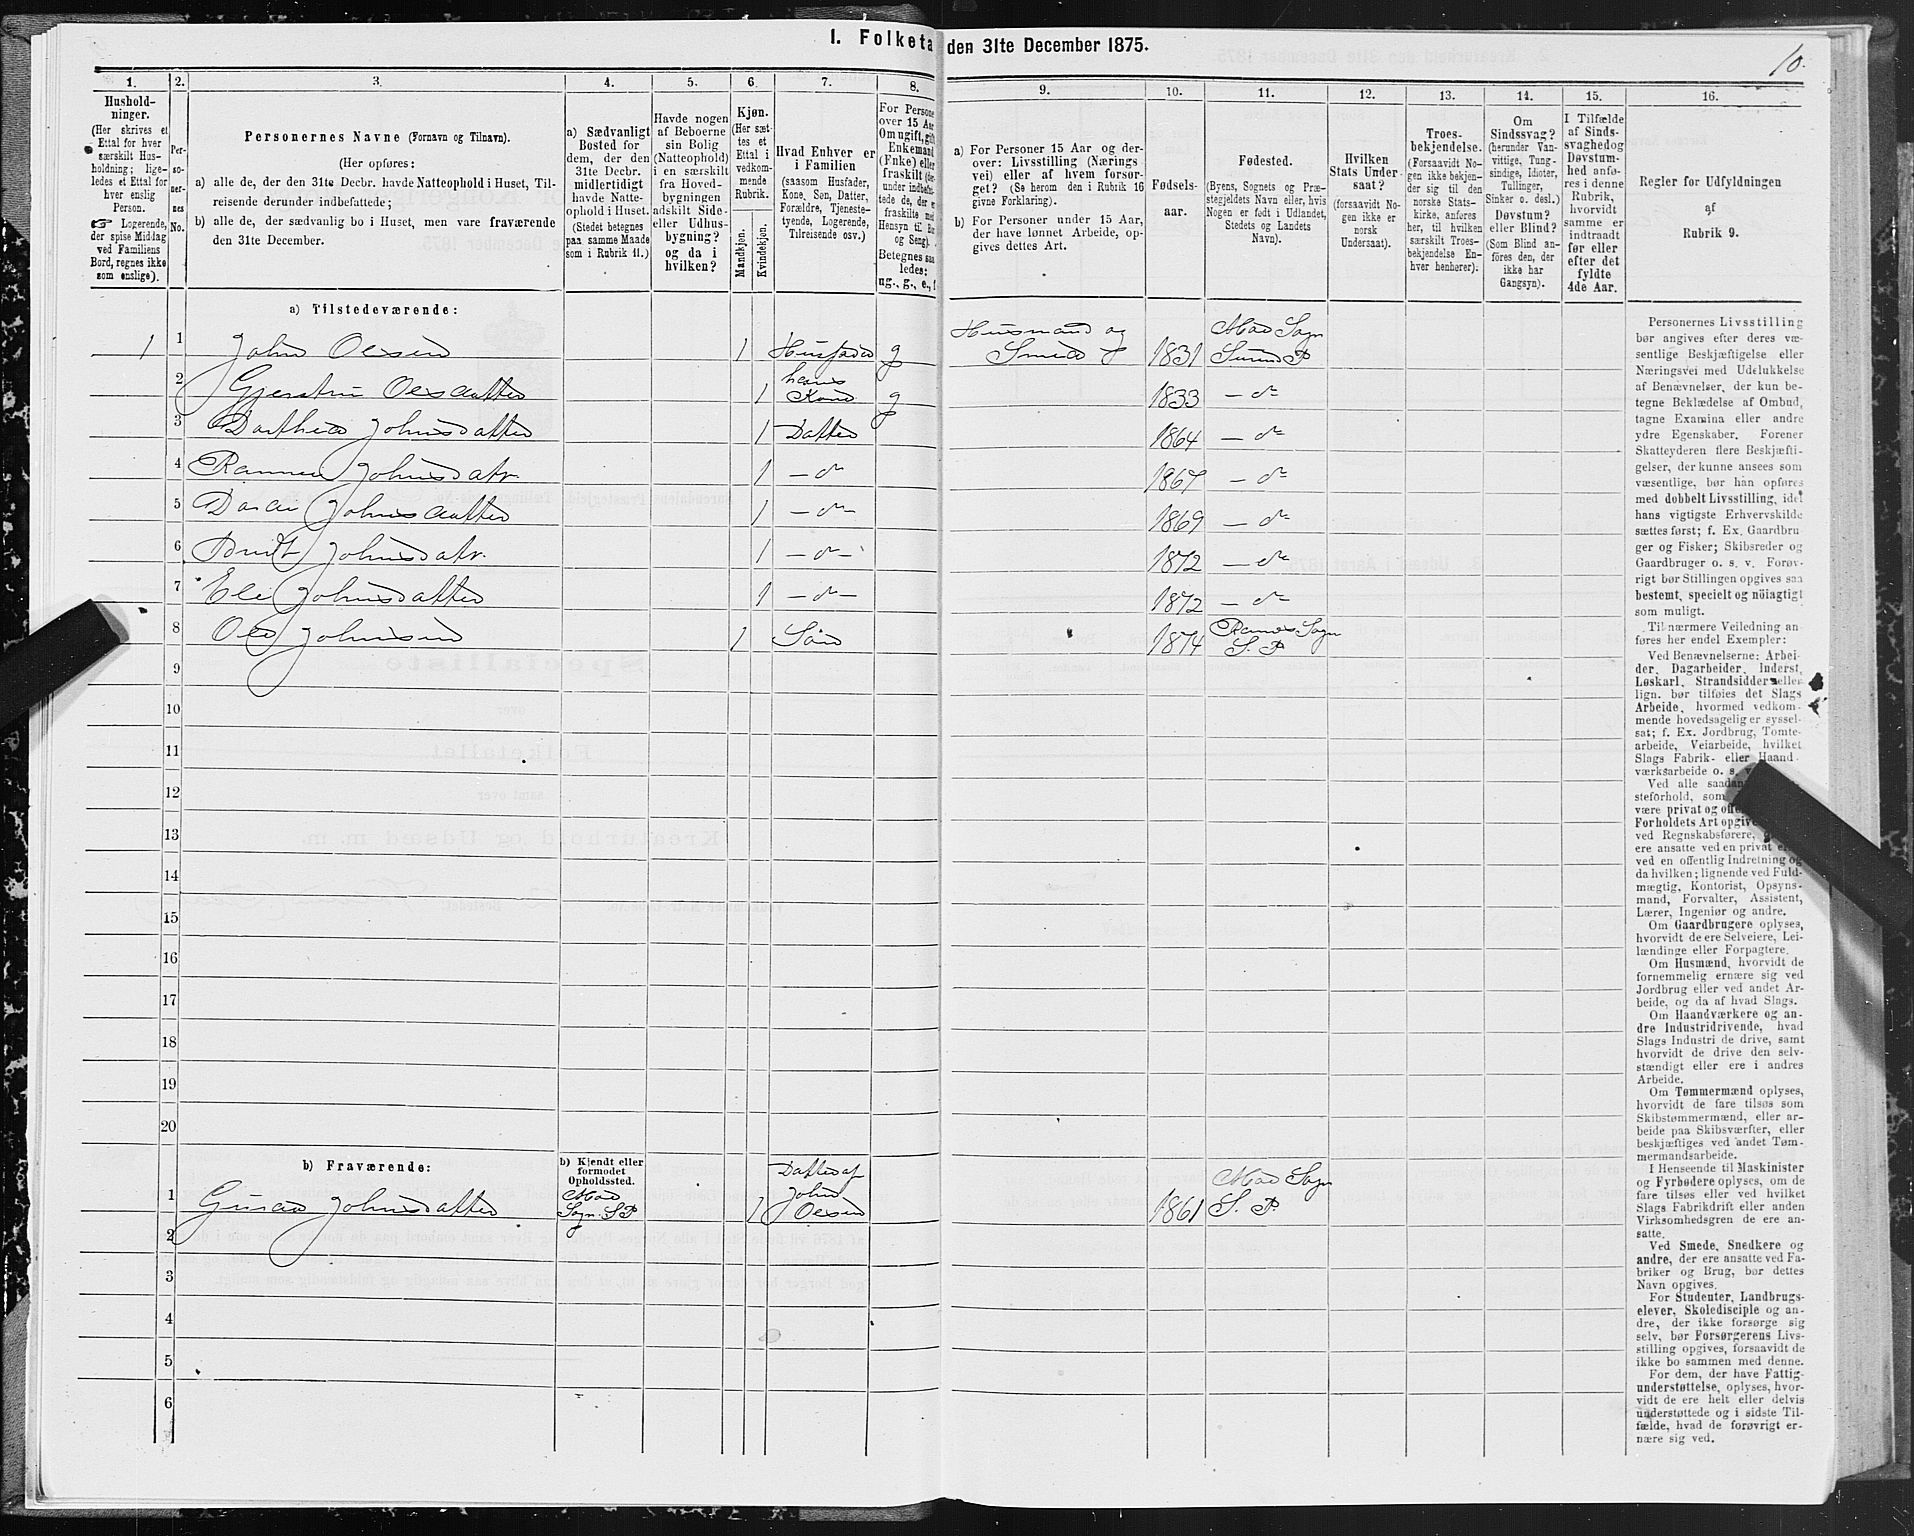 I. Folketa den 31te December 1875.
10.
1.
Hushold-
ninger.
(Her skrives et
Ettal for hver
særskilt Hus-
holdning; lige-
ledes et Ettal for
hver enslig
Person.
☞ Logerende,
der spise Middag
ved Familiens
Bord, regnes ikke
som enslige).
2.
Per-
so-
ner-
nes
No.
3.
Personernes Navne (Fornavn og Tilnavn).
(Her opføres:
a) alle de, der den 31te Decbr. havde Natteophold i Huset, Til-
reisende derunder indbefattede;
b) alle de, der sædvanlig bo i Huset, men vare fraværende
den 31te December.
4.
a) Sædvanligt
Bosted for
dem, der den
31te Decbr.
midlertidigt
havde Natte-
ophold i Huset.
(Stedet betegnes
paa samme Maade
som i Rubrik 11.)
5.
Havde nogen
af Beboerne
sin Bolig
(Natteophold)
i en særskilt
fra Hoved-
bygningen
adskilt Side-
eller Udhus-
bygning?
og da i
hvilken?
6.
Kjøn.
(Her sæt-
tes et
Ettal i
vedkom-
mende
Rubrik.
Mandkjøn.
Kvindekjøn.
7.
Hvad Enhver er
i Familien
(saasom Husfader,
Kone, Søn, Datter,
Forældre, Tjeneste-
tyende, Logerende,
Tilreisende osv.)
8.
For Persone
over 15 Aar
Om ugift, gift
Enkemand
(Enke) eller
fraskilt
Betegnes saa
ledes:
ug., g., e., f
9.
a) For Personer 15 Aar og der-
over: Livsstilling (Nærings
vei) eller af hvem forsør-
get? (Se herom den i Rubrik 16
givne Forklaring).
b) For Personer under 15 Aar,
der have lønnet Arbeide, op-
gives dettes Art.
10.
Fødsels-
aar.
11.
Fødested.
(Byens, Sognets og Præ-
stegjeldets Navn eller, hvis
Nogen er født i Udlandet,
Stedets og Landets
Navn).
12.
Hvilken
Stats Under-
saat?
(forsaavidt No-
gen ikke er
norsk
Undersaat).
13.
Troes-
bekjendelse.
(Forsaavidt No-
gen ikke bekjen-
der sig til den
norske Stats-
kirke, anføres
her, til hvilken
særskilt Troes-
bekjendelse En-
hver henhører).
14.
Om
Sindssvag?
(herunder Van-
vittige, Tung-
sindige, Idioter,
Tullinger,
Sinker o. desl.)
Døvstum?
eller Blind?
(Som Blind an-
føres den, der
ikke har
Gangsyn).
15.
I Tilfælde
af Sinds-
svaghed og
Døvstum-
hed anfø-
res i denne
Rubrik,
hvorvidt
samme er
indtraadt
før eller
efter det
fyldte
4de Aar.
16.
Regler for Udfyldningen
af
Rubrik 9.
a) Tilstedeværende:
1 1 John Olsen 1 Husfader g Husmand og Smed 1831 Moe Sogn Surend. P
2 Gjertru Olsdatter 1 hans Kone g 1833 — do
3 Dorthea Johnsdatter 1 Datter 1864 — do
4 Johnsdatr. 1 — do 1867 — do
5 Johnsdatter 1 — do — 1869 — do
6 Johnsdatr. 1 — do — 1872 — do
7 Eli Johnsdatter 1 — do — 1872 — do
8 Ole Johnsen 1 Søn 1874 Ranes Sogn S. P
9
10
11
12
13
14
15
16
17
18
19
20
b) Fraværende:
b) Kjendt eller
formodet
Opholdssted.
1 Johnsdatter Moe Sogn. S. P 1 Datter af John Olsen 1861 Moe Sogn S. P
2
3
4
5
6
Personernes Livsstilling
bør angives efter deres væ-
sentlige Beskjæftigelse eller
Næringsvei med Udelukkelse
af Benævnelser, der kun be-
tegne Beklædelse af Ombud,
tagne Examina eller andre
ydre Egenskaber. Forener
Skatteyderen flere Beskjæfti-
gelser, der kunne ansees som
væsentlige, bør han opføres
med dobbelt Livsstilling, idet
hans vigtigste Erhvervskilde
sættes først; f. Ex. Gaardbru-
ger og Fisker; Skibsreder og
Gaardbruger o. s. v. Forøv-
rigt bør Stillingen opgives saa
bestemt, specielt og nøiagtigt
som muligt.
Til nærmere Veiledning an-
føres her endel Exempler:
Ved Benævnelserne: Arbei-
der, Dagarbeider, Inderst,
Løskarl, Strandsidder eller
lign. bør tilføies det Slags
Arbeide, hvormed vedkom-
mende hovedsagelig er syssel-
sat; f. Ex. Jordbrug, Tomte-
arbeide, Veiarbeide, hvilket
Slags Fabrik- eller Haand-
værksarbeide o. s. v.
Ved alle saadan
steforhold, som
være privat og offe
Forholdets Art opgive
ved Regnskabsførere,
ere ansatte ved en privat
ved en offentlig Indretning og
da hvilken; lignende ved Fuld-
mægtig, Kontorist, Opsyns-
mand, Forvalter, Assistent,
Lærer, Ingeniør og andre.
Om Gaardbrugere oplyses,
hvorvidt de ere Selveiere, Lei-
lændinge eller Forpagtere.
Om Husmænd, hvorvidt de
fornemmelig ernære sig ved
Jordbrug eller ved andet Ar-
beide, og da af hvad Slags.
Om Haandværkere og an-
dre Industridrivende, hvad
Slags Industri de drive, samt
hvorvidt de drive den selv-
stændigt eller ere i andres
Arbeide.
Om Tømmermænd oplyses,
hvorvidt de fare tilsøs som
Skibstømmermænd, eller ar-
beide paa Skibsværfter, eller
beskjæftiges ved andet Tøm-
mermandsarbeide.
I Henseende til Maskinister
og Fyrbødere oplyses, om de
fare tilsøs eller ved hvilket
Slags Fabrikdrift eller anden
Virksomhedsgren de ere an-
satte.
Ved Smede, Snedkere og
andre, der ere ansatte ved Fa-
briker og Brug, bør dettes
Navn opgives.
For Studenter, Landbrugs-
elever, Skoledisciple og an-
dre, der ikke forsørge sig
selv, bør Forsørgerens Livs-
stilling opgives, forsaavidt de
ikke bo sammen med denne.
For dem, der have Fattig-
understøttelse, oplyses, hvor-
vidt de ere helt eller delvis
understøttede og i sidste Til-
fælde, hvad de forøvrigt er-
nære sig ved.